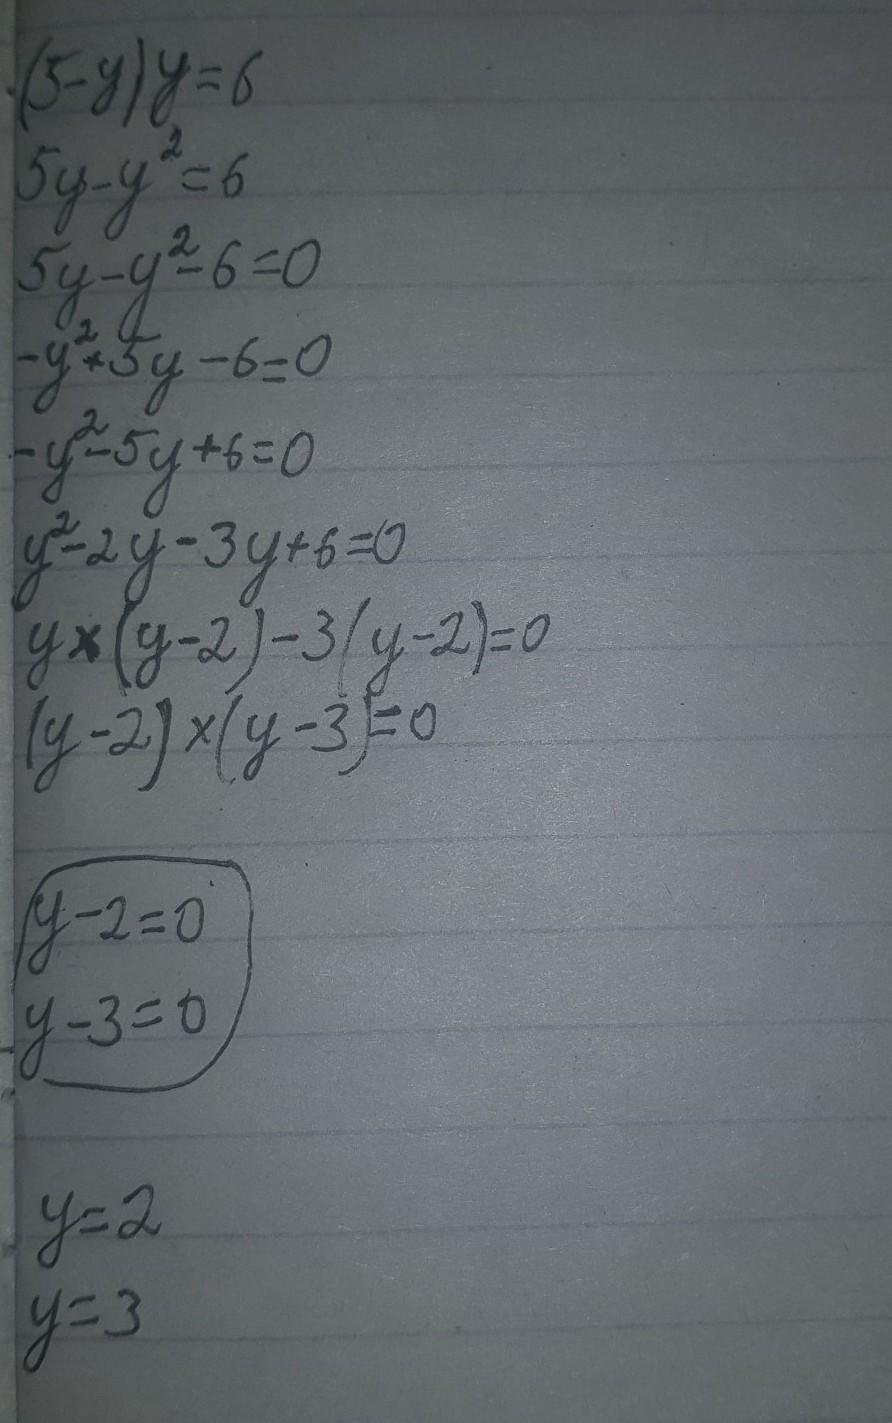 (5-y)y=6
5y-y²=6
5y-y²-6=0
-y²+5y-6=0
-y²-5y+6=0
y²-2y-3y+6=0
y×(y-2)-3(y-2)=0
(y-2)×(y-3)=0
y-2=0
y-3=0
y=2
y=3